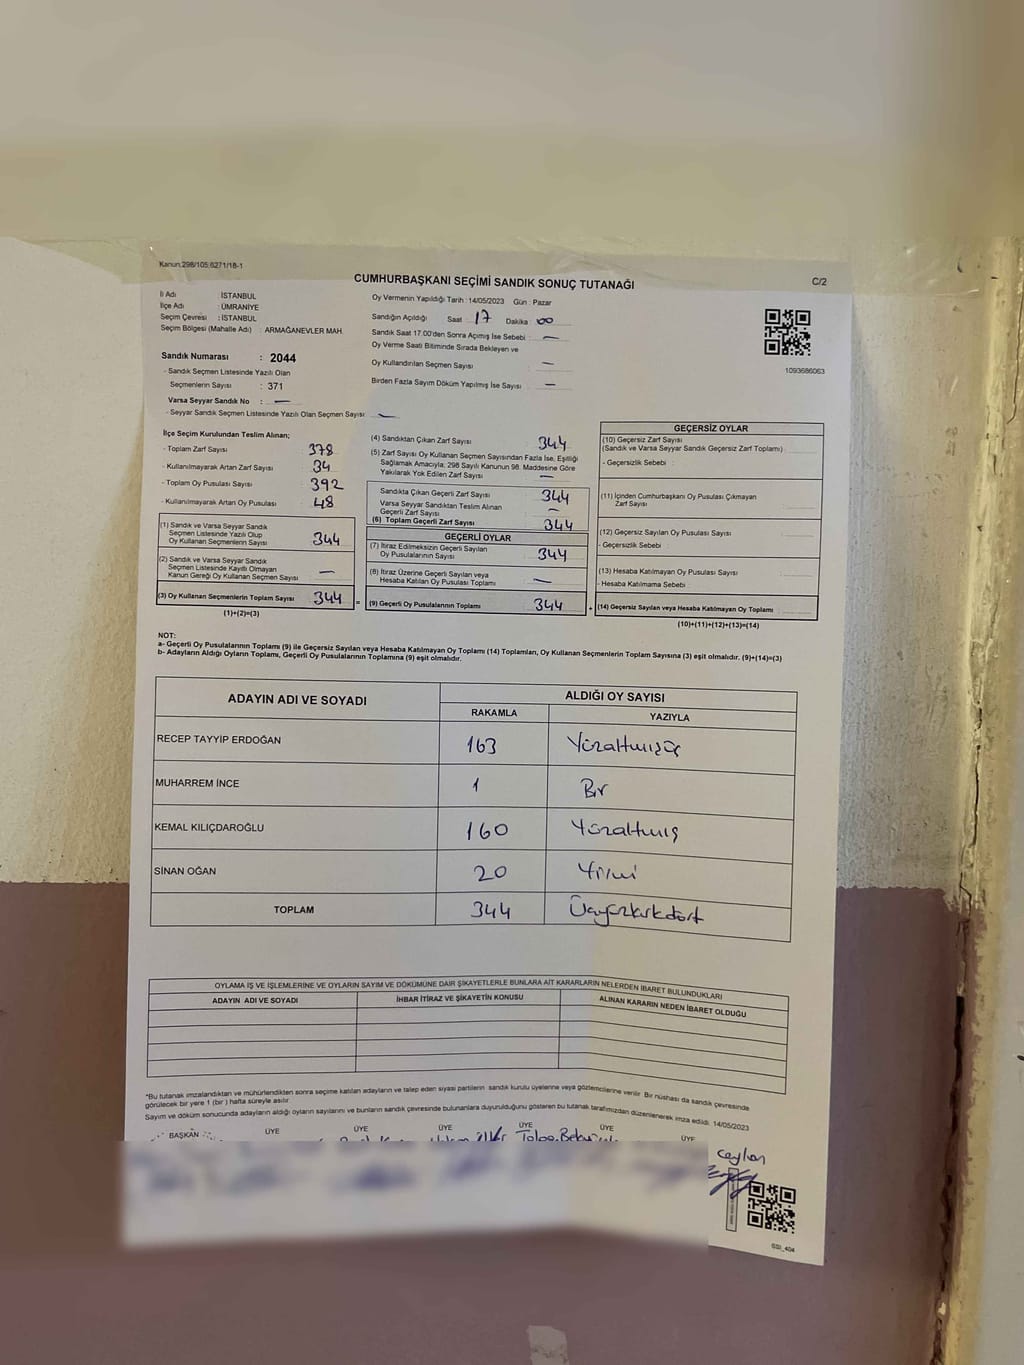 Kanun:298/105;6271/18-1
CUMHURBAŞKANI SEÇİMİ SANDIK SONUÇ TUTANAĞI
C/2
İl Adı : İSTANBUL
İlçe Adı : ÜMRANİYE
Seçim Çevresi : İSTANBUL
Seçim Bölgesi (Mahalle Adı) : ARMAĞANEVLER MAH.
Sandık Numarası : 2044
- Sandık Seçmen Listesinde Yazılı Olan
Seçmenlerin Sayısı : 371
Varsa Seyyar Sandık No : —
- Seyyar Sandık Seçmen Listesinde Yazılı Olan Seçmen Sayısı : —
Oy Vermenin Yapıldığı Tarih : 14/05/2023 Gün : Pazar
Sandığın Açıldığı Saat : 17 Dakika : 00
Sandık Saat 17.00'den Sonra Açımış İse Sebebi : —
Oy Verme Saati Bitiminde Sırada Bekleyen ve
Oy Kullandırılan Seçmen Sayısı : —
Birden Fazla Sayım Döküm Yapılmış İse Sayısı : —
1093686063
İlçe Seçim Kurulundan Teslim Alınan;
- Toplam Zarf Sayısı : 378
- Kullanılmayarak Artan Zarf Sayısı : 34
- Toplam Oy Pusulası Sayısı : 392
- Kullanılmayarak Artan Oy Pusulası : 48
(1) Sandık ve Varsa Seyyar Sandık
Seçmen Listesinde Yazılı Olup
Oy Kullanan Seçmenlerin Sayısı : 344
(2) Sandık ve Varsa Seyyar Sandık
Seçmen Listesinde Kayıtlı Olmayan
Kanun Gereği Oy Kullanan Seçmen Sayısı : —
(3) Oy Kullanan Seçmenlerin Toplam Sayısı : 344 =
(1)+(2)=(3)
(4) Sandıktan Çıkan Zarf Sayısı : 344
(5) Zarf Sayısı Oy Kullanan Seçmen Sayısından Fazla İse, Eşitliği
Sağlamak Amacıyla; 298 Sayılı Kanunun 98. Maddesine Göre
Yakılarak Yok Edilen Zarf Sayısı : —
Sandıkta Çıkan Geçerli Zarf Sayısı : 344
Varsa Seyyar Sandıktan Teslim Alınan
Geçerli Zarf Sayısı : —
(6) Toplam Geçerli Zarf Sayısı : 344
GEÇERLİ OYLAR
(7) İtiraz Edilmeksizin Geçerli Sayılan
Oy Pusulalarının Sayısı : 344
(8) İtiraz Üzerine Geçerli Sayılan veya
Hesaba Katılan Oy Pusulası Toplamı : —
(9) Geçerli Oy Pusulalarının Toplamı : 344 +
GEÇERSİZ OYLAR
(10) Geçersiz Zarf Sayısı
(Sandık ve Varsa Seyyar Sandık Geçersiz Zarf Toplamı) :
- Geçersizlik Sebebi :
(11) İçinden Cumhurbaşkanı Oy Pusulası Çıkmayan
Zarf Sayısı :
(12) Geçersiz Sayılan Oy Pusulası Sayısı :
- Geçersizlik Sebebi :
(13) Hesaba Katılmayan Oy Pusulası Sayısı :
- Hesaba Katılmama Sebebi :
(14) Geçersiz Sayılan veya Hesaba Katılmayan Oy Toplamı :
(10)+(11)+(12)+(13)=(14)
NOT:
a- Geçerli Oy Pusulalarının Toplamı (9) ile Geçersiz Sayılan veya Hesaba Katılmayan Oy Toplamı (14) Toplamları, Oy Kullanan Seçmenlerin Toplam Sayısına (3) eşit olmalıdır. (9)+(14)=(3)
b- Adayların Aldığı Oyların Toplamı, Geçerli Oy Pusulalarının Toplamına (9) eşit olmalıdır.
ADAYIN ADI VE SOYADI ALDIĞI OY SAYISI
RAKAMLA YAZIYLA
RECEP TAYYİP ERDOĞAN 163 Yüzaltmışüç
MUHARREM İNCE 1 Bir
KEMAL KILIÇDAROĞLU 160 Yüzaltmış
SİNAN OĞAN 20 Yirmi
TOPLAM 344 Üçyüzkırkdört
OYLAMA İŞ VE İŞLEMLERİNE VE OYLARIN SAYIM VE DÖKÜMÜNE DAİR ŞİKAYETLERLE BUNLARA AİT KARARLARIN NELERDEN İBARET BULUNDUKLARI
ADAYIN ADI VE SOYADI İHBAR İTİRAZ VE ŞİKAYETİN KONUSU ALINAN KARARIN NEDEN İBARET OLDUĞU
*Bu tutanak imzalandıktan ve mühürlendikten sonra seçime katılan adayların ve talep eden siyasi partilerin sandık kurulu üyelerine veya gözlemcilerine verilir. Bir nüshası da sandık çevresinde
görülecek bir yere 1 (bir ) hafta süreyle asılır.
Sayım ve döküm sonucunda adayların aldığı oyların sayılarını ve bunların sandık çevresinde bulunanlara duyurulduğunu gösteren bu tutanak tarafımızdan düzenlenerek imza edildi. 14/05/2023
BAŞKAN ÜYE ÜYE ÜYE ÜYE ÜYE ÜYE
Ceylan
GSI_404